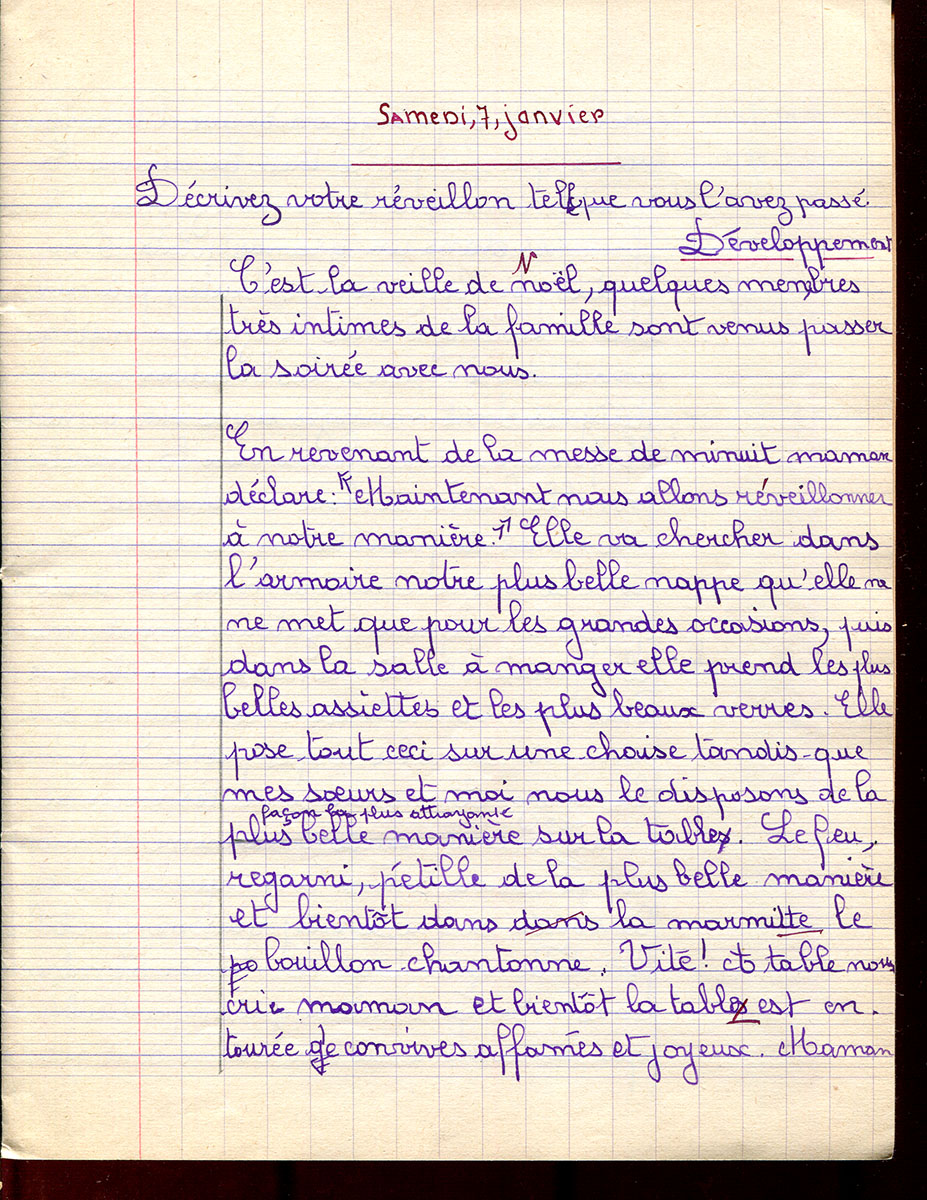 Samedi, 7, janvier
Décrivez votre réveillon tel que vous l'avez passé.
Développement
C'est la veille de Noël, quelques membres
très intimes de la famille sont venus passer
la soirée avec nous.
En revenant de la messe de minuit maman
déclare: "Maintenant nous allons réveillonner
à notre manière." Elle va chercher dans
l'armoire notre plus belle nappe qu'elle ne
ne met que pour les grandes occasions, puis
dans la salle à manger elle prend les plus
belles assiettes et les plus beaux verres. Elle
pose tout ceci sur une chaise tandis-que
mes sœurs et moi nous le disposons de la
façon la plus attrayante
plus belle manière sur la table. Le feu,
regarni, pétille de la plus belle manière
et bientôt dans dans la marmitte le
bouillon chantonne. Vite! à table nous
crie maman et bientôt la table est en-
tourée de convives affamés et joyeux. Maman